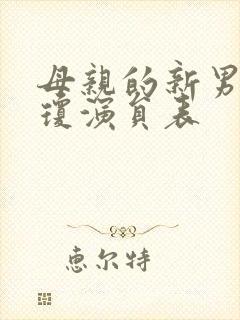 母親的新男
瓊演員表
恵尔特